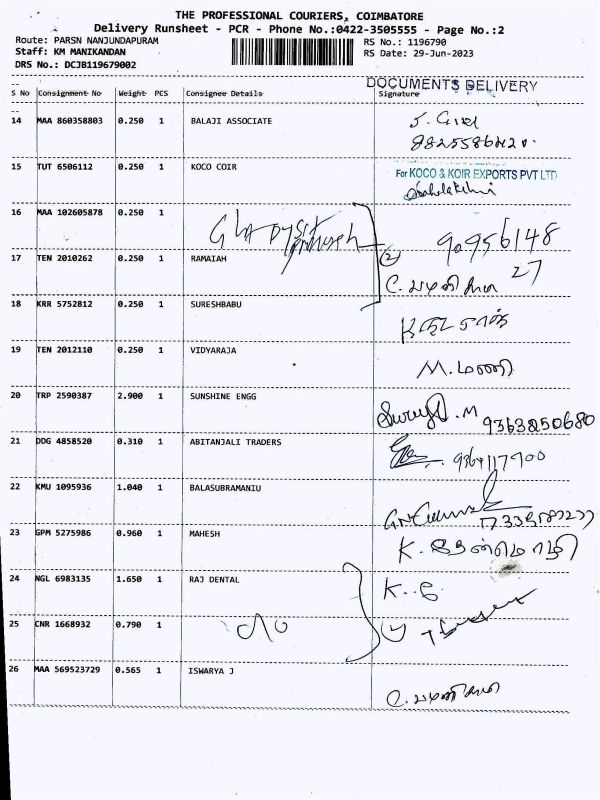 THE PROFESSIONAL COURIERS, COIMBATORE
Delivery Runsheet - PCR - Phone No.:0422-3505555 - Page No.:2
Route: PARSN NANJUNDAPURAM RS No.: 1196790
Staff: KM MANIKANDAN RS Date: 29-Jun-2023
DRS No.: DCJB119679002
DOCUMENTS DELIVERY
S No Consignment No Weight PCS Consignee Details Signature
14 MAA 860358803 0.250 1 BALAJI ASSOCIATE
15 TUT 6506112 0.250 1 KOCO COIR For KOCO & KOIR EXPORTS PVT LTD
16 MAA 102605878 0.250 1 90956148
27
17 TEN 2010262 0.250 1 RAMAIAH 2
18 KRR 5752812 0.250 1 SURESHBABU
19 TEN 2012110 0.250 1 VIDYARAJA M. மணி
20 TRP 2590387 2.900 1 SUNSHINE ENGG 9363250680
21 DDG 4858520 0.310 1 ABITANJALI TRADERS 9364117900
22 KMU 1095936 1.040 1 BALASUBRAMANIU
23 GPM 5275986 0.960 1 MAHESH
24 NGL 6983135 1.650 1 RAJ DENTAL
25 CNR 1668932 0.790 1
26 MAA 569523729 0.565 1 ISWARYA J